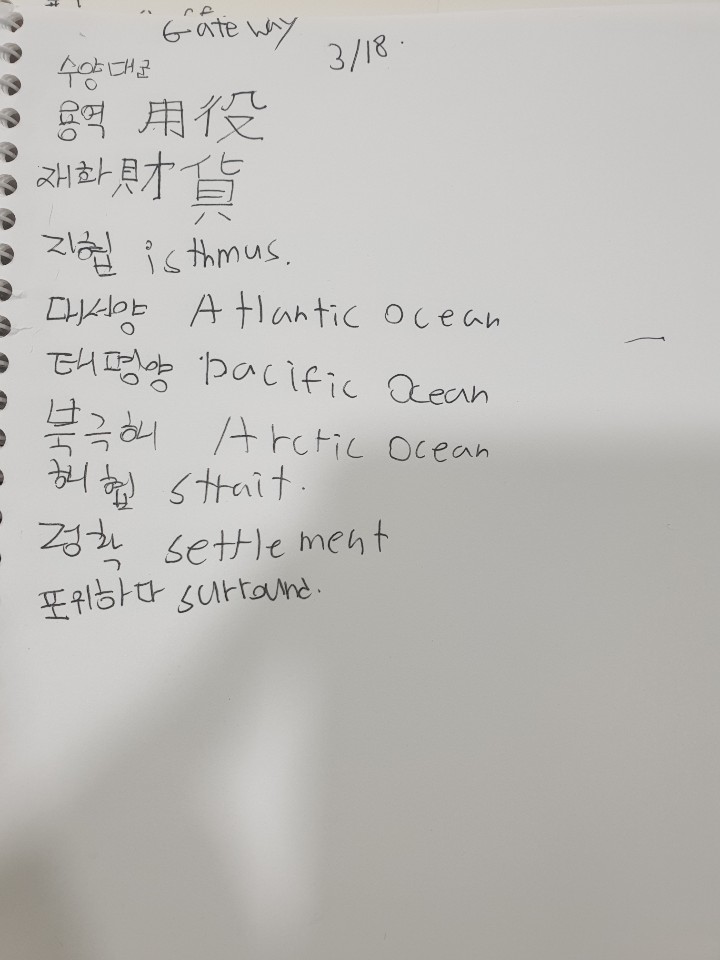 Gateway
3/18.
수양대군
용역 用役
재화 財貨
지협 isthmus.
대서양 Atlantic Ocean
태평양 pacific Ocean
북극해 Arctic Ocean
해협 strait.
정착 settlement
포위하다 surround.